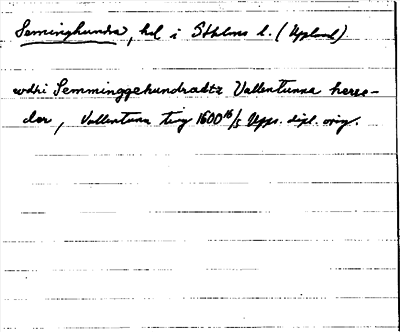 Seminghundra, hd i Sthlms l. (Uppland)
wdhi Semminggehundradtz Vallentunna herre-
der, Vallentuna ting 1600 16/5 Upps. dipl. orig.